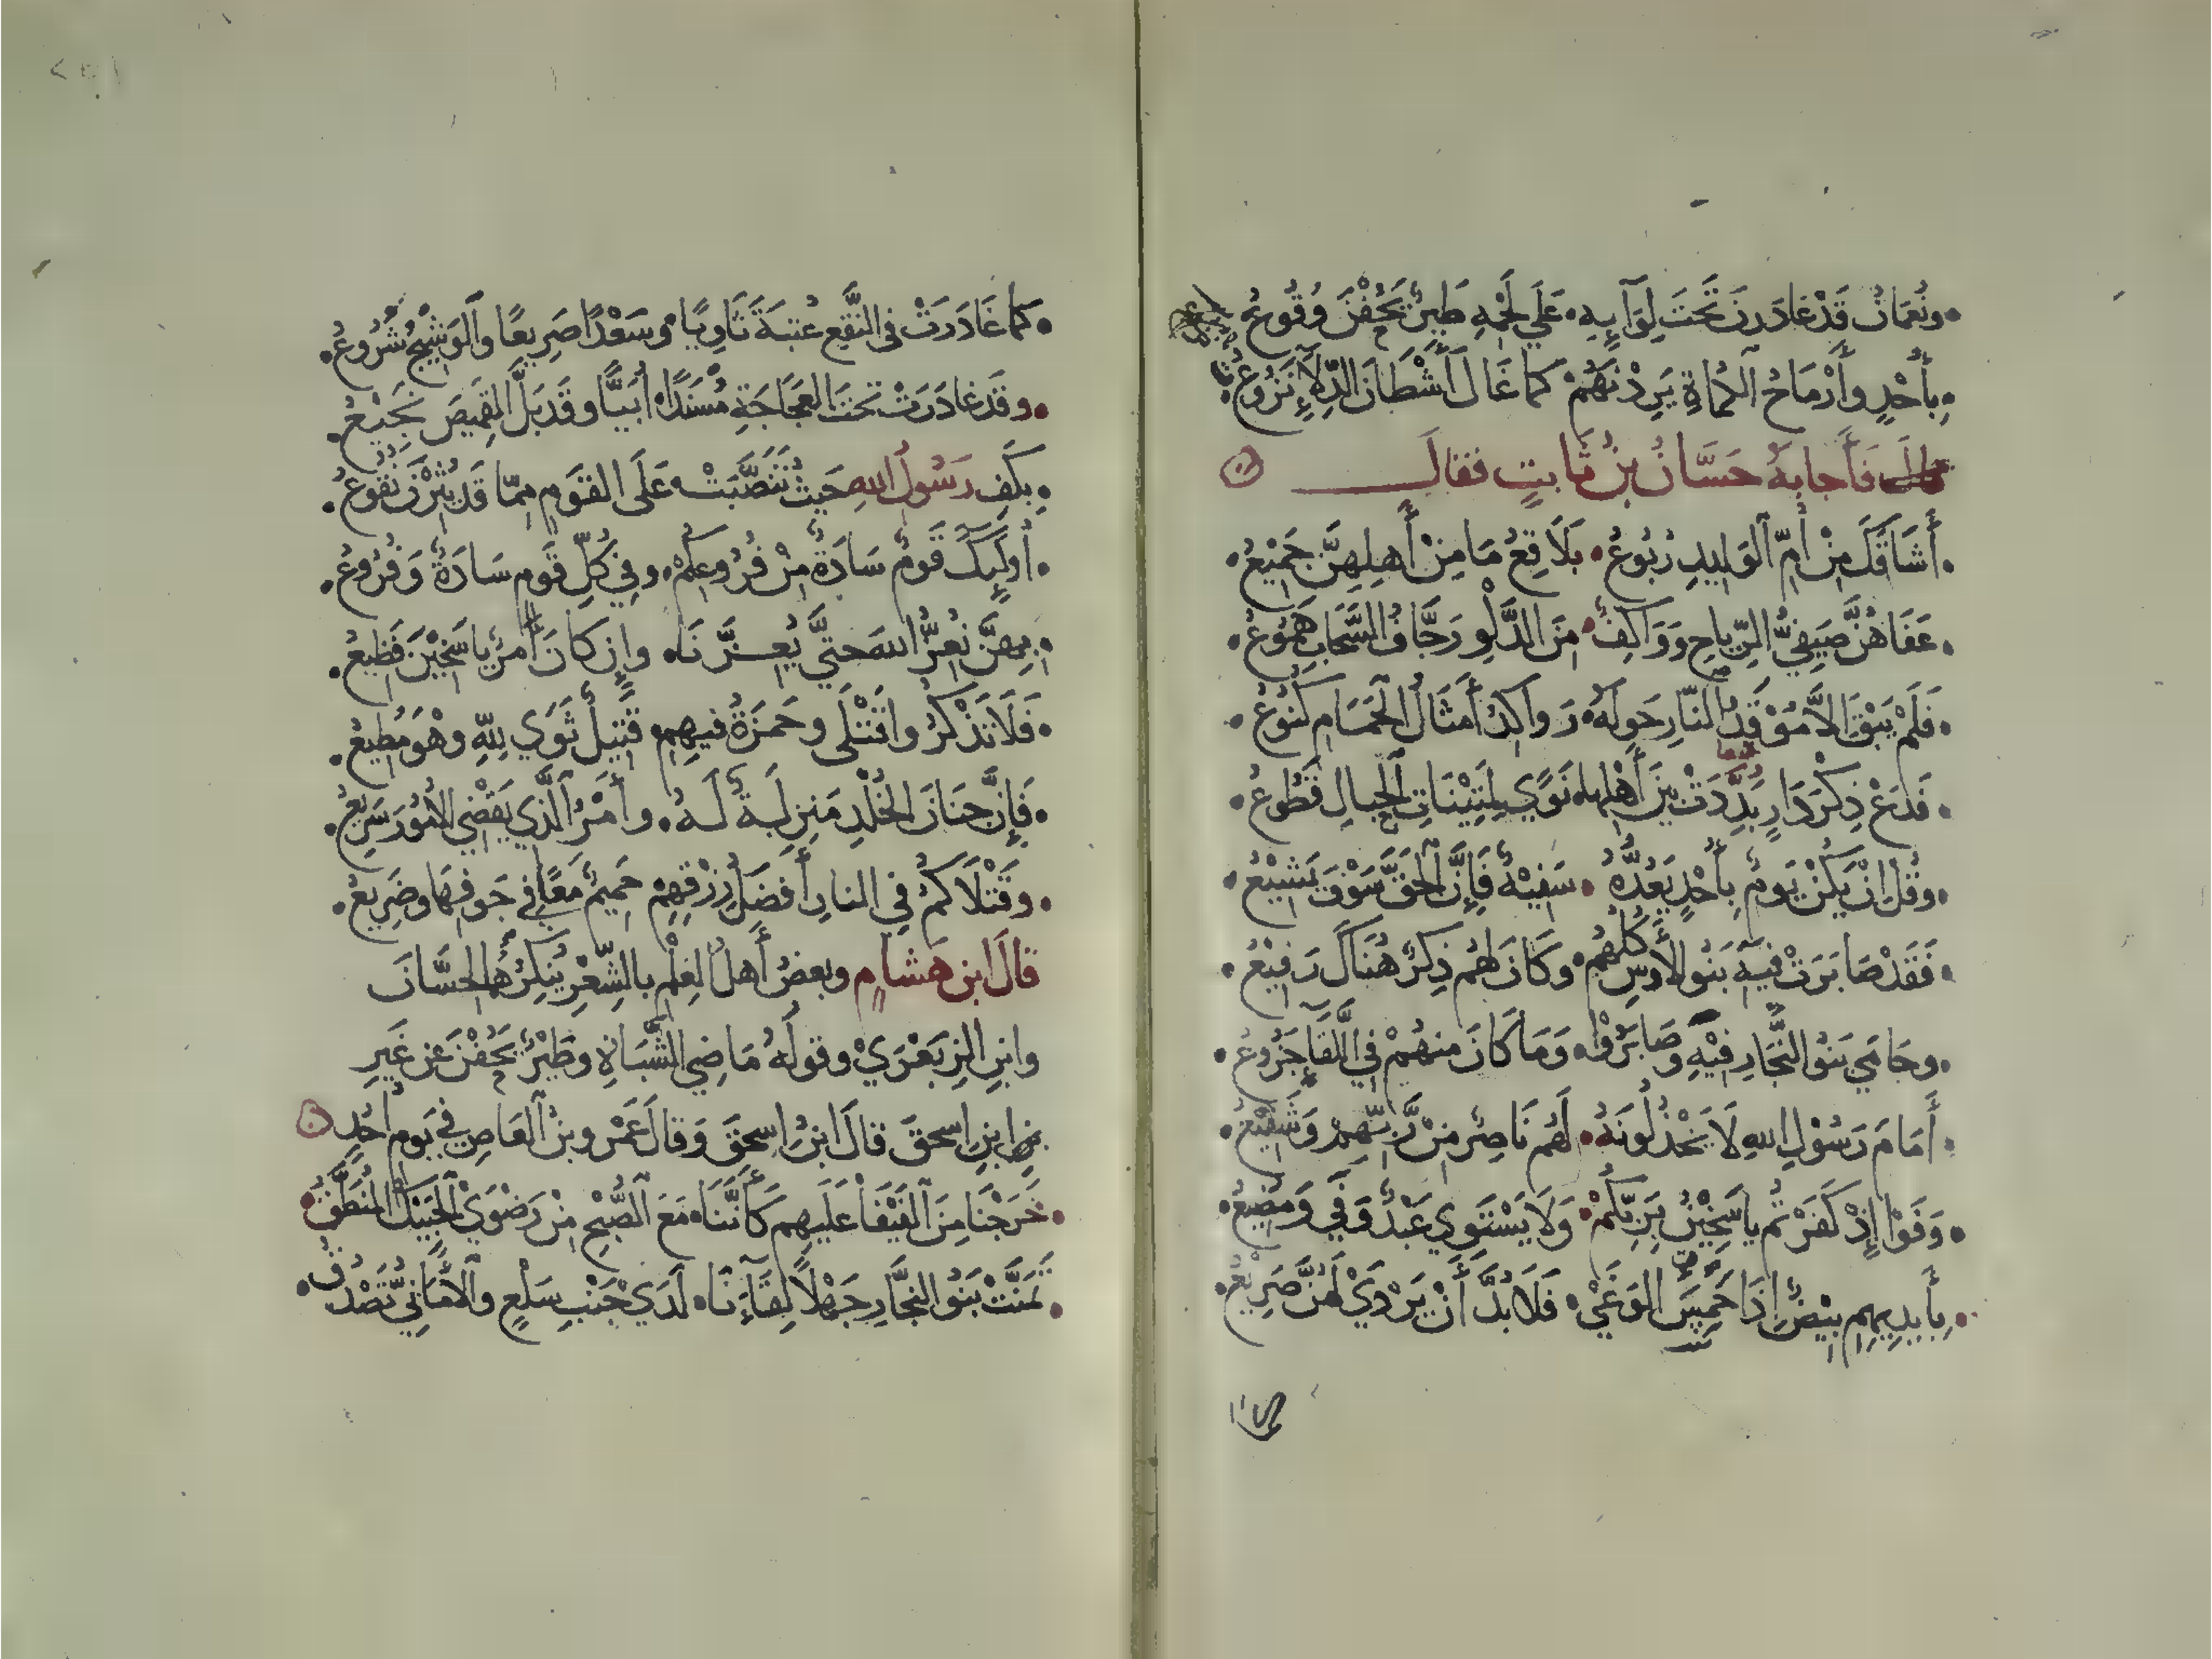 ونُعمَانُ قَدْ غَادَرنَ تَحْتَ لِوَآيِهِ • عَلَي لَحْمِهِ طَيرٌ يَجُفْنَ وُقُوعُ •
بِأُحْدٍ وأَرْمَاحُ الكُمَاةِ يَرِدْنَهُمْ كما غَالَ أَشْطَانَ الدِّلَإِ نَزُوعُ •
فَأَجابَهُ حَسَّانُ بنُ ثَابتٍ فقالَ
أَشَاقَكَ مِنْ أُمِّ الوَلِيدِ رُبُوعُ • بَلَاقِعُ مَا مِنْ أَهلِهِنَّ جَمِيْعُ •
عَفَاهُنَّ صَيفِيُّ الرِّيَاحِ وَوَاكِفٌ • مِنَ الدَّلْوِ رَجَّافُ السَّحَابِ هَمُوعُ •
فَلَمْ يَبْقَ الَّا مُوْقَدُ النَّارِ حَولَهُ • رَوَاكِدُ أَمثَالُ الحَمَامِ كُنُوعُ •
فَدَعْ ذِكْرَ دَارٍ بَدَّدَتْ بَينَ أَهْلِهَا • نَوًي لِمَتِيْنَاتِ الحِبالِ قَطُوعُ •
وقُل انْ يَكُنْ يَومٌ بِأُحْدٍ يَعُدُّهُ • سَفِيْهٌ فَإِنَّ الحَقَّ سَوْفَ يَشِيْعُ •
فَقَدْ صَابَرَتْ فيهِ بَنُو الأَوسِ كُلُّهُمْ • وكَانَ لَهُم ذِكرٌ هُنَاكَ رَفِيْعُ •
وحَامَي بَنُو النَّجَّارِ فِيْهِ وصَابَرُوْا • وَمَا كَانَ منهُمْ في اللِّقَآءِ جَزُوعُ •
أَمَامَ رَسُوْلِ اللهِ لَا يَخْذُلُونَهُ • لَهُم نَاصِرٌ مِنْ رَّبِّهِمْ وَشَفِيْعُ •
وَفَوْا إِذْ كَفَرْتُم يا سَخِيْنُ بِرَبِّكُمْ • وَلَا يَسْتَوِي عَبْدٌ وَفَي وَمُضِيعُ •
بِأَيدِيهِم بِيْضٌ إِذَا حَمِيَ الوَغَي • فَلَا بُدَّ أَنْ يَرْدَيْ لَهُنَّ صَرِيْعُ •
كما غَادَرَتْ في النَّقعِ عُتبَةَ ثَاوِيًا • وسَعْدًا صَرِيعًا والوَشِيْجُ شُرُوعُ •
وقَد غادَرَتْ تحتَ العَجَاجَةِ مُسْنَدًا أُبَيًّا وقَد بَلَّ القَمِيصَ نَجِيْعُ •
بِكَفِ رَسُولِ اللهِ حَيثُ تَنَصَّبَتْ • عَلَى القَومِ مِمّا قَد يُثِرْنَ نُقُوعُ •
أولَيِكَ قَومٌ سَادَةٌ مِنْ فُرُوعِكُمْ • وفي كُلِّ قَومٍ سَادَةٌ وَفُرُوعُ •
بِهِنَّ نُعِزُّ اللهَ حتيَّ يُعِزَّنَا • وإِن كانَ أَمرٌ يا سَخِيْنَ فَظِيعُ •
فَلَا تَذْكُرُوا قَتْلَى وحَمزَةُ فيهِم • قَتِيلٌ ثَوَي لِلّهِ وهْوَ مُطِيعُ •
فَإِنَّ جِنَانَ الخُلْدِ مَنزِلَةٌ لَهُ • وأَمْرُ الَّذي يَقْضِي الأُمُورَ سَرِيعُ •
وقَتْلَاكُمُ في النارِ أَفضَلُ رِزْقِهِمْ حَمِيمٌ مَعًا في جَوفِهَا وضَرِيعُ •
قالَ ابن هشامٍ وبعضُ أَهلِ العِلْمِ بالشِّعْرِ يُنكِرُهُما لِحَسَّانَ
وابنِ الزِبَعْرَيْ وقولُهُ مَاضِي الشَّبَاةِ وطَيْرٌ يَجُفْنَ عن غَيرِ
ابنِ اسحقَ قالَ ابنُ اسحقَ وَقالَ عَمْرُو بنُ العَاصِ في يَومِ أُحُدٍ
خَرَجْنَا مِنَ الفَيْفَا عَلَيهِم كَأَنَّنَا • مَعَ الصُّبْحِ مِنْ رَضْوَيْ الحَبِيْكُ المُنَطَّقُ •
تَمَنَّتْ بَنُو النَجَّارِ جَهْلًا لِقَآءَنَا • لَدَي جَنْبِ سَلْعٍ والأَمَانِيُّ تَصْدُقُ •